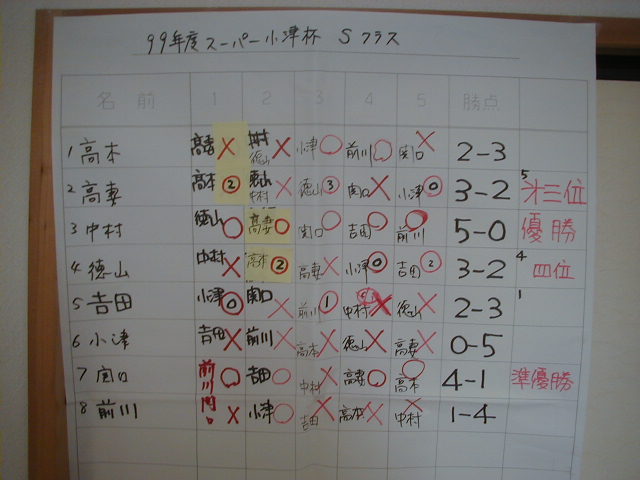 99年度 スーパー小津杯 S クラス
名前 1 2 3 4 5 勝点
1 高本 高妻 × 徳山 × 小津 ○ 前川 ○ 関口 × 2-3
2 高妻 高本 ② 中村 × 徳山 ③ 関口 × 小津 ⓪ 3-2 5 才三位
3 中村 徳山 ○ 高妻 ○ 関口 ○ 吉田 ○ 前川 ○ 5-0 優勝
4 徳山 中村 × 高本 ② 高妻 × 小津 ⓪ 吉田 ② 3-2 4 四位
5 吉田 小津 ⓪ 関口 × 前川 ① 中村 × 徳山 × 2-3 1
6 小津 吉田 × 前川 × 高本 × 徳山 × 高妻 × 0-5
7 関口 前川 ○ 吉田 ○ 中村 × 高妻 ○ 高本 ○ 4-1 準優勝
8 前川 × 小津 ○ 吉田 × 高本 × 中村 × 1-4